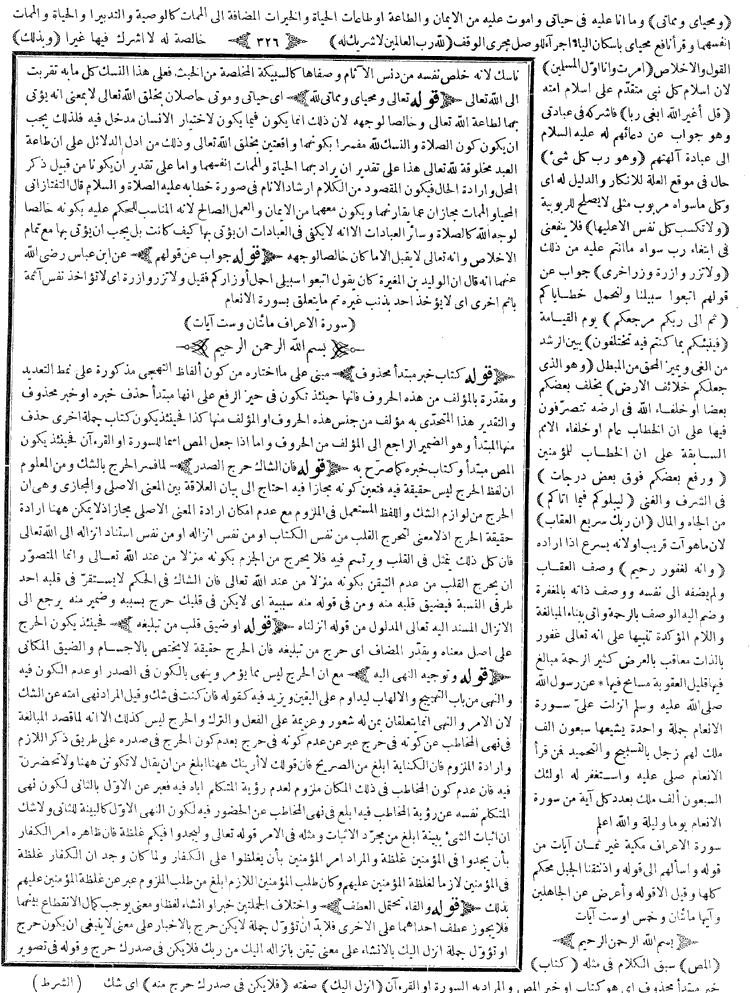 (ومحياى ومماتى) وما انا عليه فى حياتى واموت عليه من الايمان والطاعة او طاعات الحياة والخيرات المضافة الى الممات كالوصية والتدبير والحياة والممات
انفسهما وقرأ نافع محياى باسكان الياء اجراء للوصل مجرى الوقف (لله رب العالمين لا شريك له) ٣٢٦ خالصة له لا اشرك فيها غيرا (وبذلك)
القول والاخلاص (امرت وانا اول المسلمين)
لان اسلام كل نبى متقدّم على اسلام امته
(قل أغير الله ابغى ربا) فاشركه فى عبادتى
وهو جواب عن دعائهم له عليه السلام
الى عبادة آلهتهم (وهو رب كل شئ)
حال فى موقع العلة للانكار والدليل له اى
وكل ما سواه مربوب مثلى لا يصلح للربوبية
(ولا تكسب كل نفس الا عليها) فلا ينفعنى
فى ابتغاء رب سواه ما انتم عليه من ذلك
(ولا تزر وازرة وزر اخرى) جواب عن
قولهم اتبعوا سبيلنا ولنحمل خطاياكم
(ثم الى ربكم مرجعكم) يوم القيامة
(فينبئكم بما كنتم فيه تختلفون) يبين الرشد
من الغى ويميز المحق من المبطل (وهو الذى
جعلكم خلائف الارض) يخلف بعضكم
بعضا او خلفاء الله فى ارضه تتصرّفون
فيها على ان الخطاب عام او خلفاء الامم
السابقة على ان الخطاب للمؤمنين
(ورفع بعضكم فوق بعض درجات)
فى الشرف والغنى (ليبلوكم فيما آتاكم)
من الجاه والمال (ان ربك سريع العقاب)
لان ما هو آت قريب اولانه يسرع اذا اراده
(وانه لغفور رحيم) وصف العقاب
ولم يضفه الى نفسه ووصف ذاته بالمغفرة
وضم اليه الوصف بالرحمة واتى ببناء المبالغة
واللام المؤكدة تنبيها على انه تعالى غفور
بالذات معاقب بالعرض كثير الرحمة مبالغ
فيها قليل العقوبة مسامح فيها * عن رسول الله
صلى الله عليه وسلم انزلت علىّ سورة
الانعام جملة واحدة يشيعها سبعون الف
ملك لهم زجل بالتسبيح والتحميد فن قرأ
الانعام صلى عليه واستغفر له اولئك
السبعون ألف ملك بعدد كل آية من سورة
الانعام يوما وليلة والله اعلم
سورة الاعراف مكية غير ثمان آيات من
قوله واسألهم الى قوله واذ نتقنا الجبل محكم
كلها وقيل الا قوله وأعرض عن الجاهلين
وآيها مائتان وخمس او ست آيات
بسم الله الرحمن الرحيم
(المص) سبق الكلام فى مثله (كتاب)
خبر مبتدأ محذوف اى هو كتاب او خبر المص والمراد به السورة او القرءآن (انزل اليك) صفته (فلا يكن فى صدرك حرج منه) اى شك (الشرط)
ناسك لانه خلص نفسه من دنس الآثام وصفاها كالسبيكة المخلصة من الخبث فعلى هذا النسك كل ما به تقربت
الى الله تعالى قوله تعالى ومحياى ومماتى لله اى حياتى وموتى حاصلان بخلق الله تعالى لا بمعنى انه يؤتى
بهما لطاعة الله تعالى وخالصا لوجهه لان ذلك انما يكون فيما يكون لاختيار الانسان مدخل فيه فلذلك يجب
ان يكون كون الصلاة والنسك لله مفسرا بكونهما واقعتين بخلق الله تعالى وذلك من ادل الدلائل على ان طاعة
العبد مخلوقة لله تعالى هذا على تقدير ان يراد بهما الحياة والممات انفسهما واما على تقدير ان يكونا من قبيل ذكر
المحل وارادة الحال فيكون المقصود من الكلام ارشاد الانام فى صورة خطابه عليه الصلاة والسلام قال التفتازانى
المحيا والممات مجازان عما يقارنهما ويكون معهما من الايمان والعمل الصالح لانه المناسب للحكم عليه بكونه خالصا
لوجه الله كالصلاة وسائر العبادات الا انه لا يكفى فى العبادات ان يؤتى بها كيف كانت بل يجب ان يؤتى بها مع تمام
الاخلاص وانه تعالى لا يقبل الا ما كان خالصا لوجهه قوله جواب عن قولهم عن ابن عباس رضى الله
عنهما انه قال ان الوليد بن المغيرة كان يقول اتبعوا سبيلى احمل أوزاركم فقيل ولا تزر وازرة اى لا تؤاخذ نفس آثمة
باثم اخرى اى لا يؤخذ احد بذنب غيره تم ما يتعلق بسورة الانعام
(سورة الاعراف مائتان وست آيات)
بسم الله الرحمن الرحيم
قوله كتاب خبر مبتدأ محذوف مبنى على ما اختاره من كون ألفاظ التهجى مذكورة على نمط التعديد
ومقدّرة بالمؤلف من هذه الحروف فانها حينئذ تكون فى حيز الرفع على انها مبتدأ حذف خبره او خبر محذوف
والتقدير هذا المتحدى به مؤلف من جنس هذه الحروف او المؤلف منها كذا فحينئذ يكون كتاب جملة اخرى حذف
منها المبتدأ وهو الضمير الراجع الى المؤلف من الحروف واما اذا جعل المص اسما للسورة او القرءآن فحينئذ يكون
المص مبتدأ وكتاب خبره كما صرّح به قوله فان الشاك حرج الصدر لما فسر الحرج بالشك ومن المعلوم
ان لفظ الحرج ليس حقيقة فيه فتعين كونه مجازا فيه احتاج الى بيان العلاقة بين المعنى الاصلى والمجازى وهى ان
الحرج من لوازم الشك واللفظ المستعمل فى الملزوم مع عدم امكان ارادة المعنى الاصلى مجاز اذ لا يمكن ههنا ارادة
حقيقة الحرج اذ لا معنى لتحرج القلب من نفس الكتاب او من نفس انزاله او من نفس استناد انزاله الى الله تعالى
فان كل ذلك يتمثل فى القلب ويرتسم فيه فلا يحرج من الجزم بكونه منزلا من عند الله تعالى وانما المتصوّر
ان يحرج القلب من عدم التيقن بكونه منزلا من عند الله تعالى فان الشاك فى الحكم لا يستقرّ فى قلبه احد
طرفى النسبة فيضيق قلبه منه ومن فى قوله منه سببية اى لا يكن فى قلبك حرج بسببه وضمير منه يرجع الى
الانزال المسند اليه تعالى المدلول من قوله انزلناه قوله او ضيق قلب من تبليغه فحينئذ يكون الحرج
على اصل معناه ويقدّر المضاف اى حرج من تبليغه فان الحرج حقيقة لا يختص بالاجسام والضيق المكانى
قوله وتوجيه النهى اليه مع ان الحرج ليس مما يؤمر وينهى بالكون فى الصدر او عدم الكون فيه
والنهى من باب التهييج والالهاب ليداوم على اليقين ويزيد فيه كقوله فان كنت فى شك وقيل المراد نهى امته عن الشك
لان الامر والنهى انما يتعلقان بمن له شعور وعزيمة على الفعل والترك والحرج ليس كذلك الا انه لما قصد المبالغة
فى نهى المخاطب عن كونه فى حرج عبر عن عدم كونه فى حرج بعدم كون الحرج فى صدره على طريق ذكر اللازم
وارادة الملزوم فان الكناية ابلغ من الصريح فان قولك لا أرينك ههنا ابلغ من ان يقال لا تكونن ههنا ولا تحضرنّ
فيه فان عدم كون المخاطب فى ذلك المكان ملزوم لعدم رؤية المتكلم اياه فيه فعبر عن الاوّل بالثانى لكون نهى
المتكلم نفسه عن رؤية المخاطب فيه ابلغ فى نهى المخاطب عن الحضور فيه لكون النهى الاوّل كالبينة للثانى ولا شك
ان اثبات الشئ ببينة ابلغ من مجرّد الاثبات ومثله فى الامر قوله تعالى وليجدوا فيكم غلظة فان ظاهره امر الكفار
بأن يجدوا فى المؤمنين غلظة والمراد امر المؤمنين بأن يغلظوا على الكفار ولما كان وجدان الكفار غلظة
فى المؤمنين لازما لغلظة المؤمنين عليهم وكان طلب المؤمنين اللازم ابلغ من طلب الملزوم عبر عن غلظة المؤمنين عليهم
بذلك قوله والفاء تحتمل العطف واختلاف الجملتين خبرا وانشاء لفظا ومعنى يوجب كمال الانقطاع بينهما
فلا يجوز عطف احداهما على الاخرى فلا بدّ ان تؤوّل جملة لا يكن حرج بالاخبار على معنى لا ينبغى ان يكون حرج
او تؤوّل جملة انزل اليك بالانشاء على معنى تيقن بانزاله اليك من ربك فلا يكن فى صدرك حرج وقوله فى تصوير